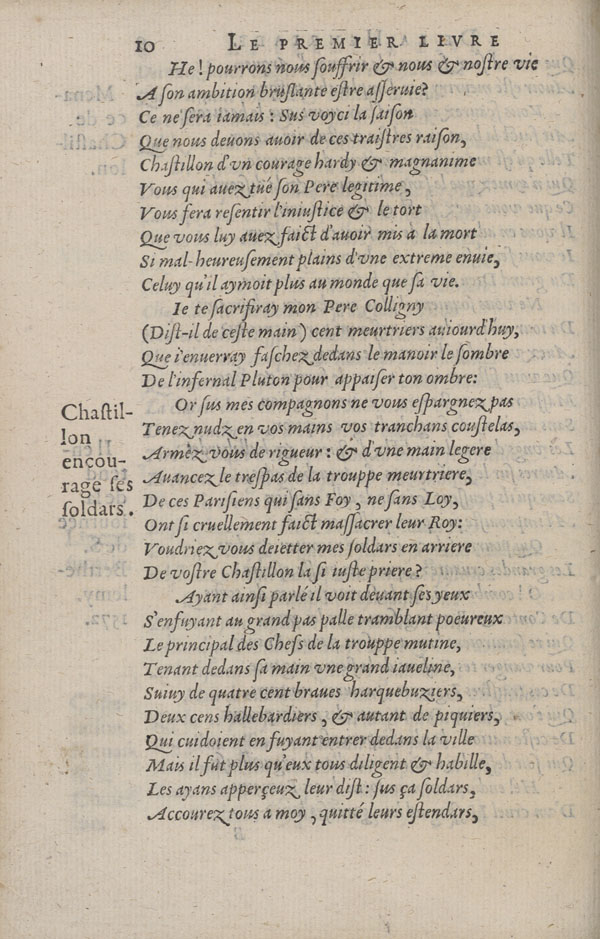 10 LE PREMIER LIVRE
He! pourrons nous ſouffrir & nous & noſtre vie
A ſon ambition bruſlante eſtre aſſeruie?
Ce ne ſera iamais: Sus voyci la ſaiſon
Que nous deuons auoir de ces traiſtres raiſon,
Chaſtillon d'vn courage hardy & magnanime
Vous qui auez tué ſon Pere legitime,
Vous fera reſentir l'iniuſtice & le tort
Que vous luy auez faict d'auoir mis a la mort
Si mal-heureuſement plains d'vne extreme enuie,
Celuy qu'il aymoit plus au monde que ſa vie.
Ie te ſacrifiray mon Pere Colligny
(Diſt-il de ceſte main) cent meurtriers auiourd'huy,
Que i'enuerray faſchez dedans le manoir le ſombre
De l'infernal Pluton pour appaiſer ton ombre:
Chaſtil-
lon
encou-
rage ſes
ſoldars.
Or ſus mes compagnons ne vous eſpargnez pas
Tenez nudz en vos mains vos tranchans couſtelas,
Armez vous de rigueur: & d'vne main legere
Auancez le treſpas de la trouppe meurtriere,
De ces Pariſiens qui ſans Foy, ne ſans Loy,
Ont ſi cruellement faict maſſacrer leur Roy:
Voudriez vous deietter mes ſoldars en arriere
De voſtre Chaſtillon la ſi iuſte priere?
Ayant ainſi parlé il voit deuant ſes yeux
S'enfuyant au grand pas palle tramblant poeureux
Le principal des Chefs de la trouppe mutine,
Tenant dedans ſa main vne grand iaueline,
Suiuy de quatre cent braues harquebuziers,
Deux cens hallebardiers, & autant de piquiers,
Qui cuidoient en fuyant entrer dedans la ville
Mais il fut plus qu'eux tous diligent & habille,
Les ayans apperçeuz leur diſt: ſus ça ſoldars,
Accourez tous a moy, quitté leurs eſtendars,